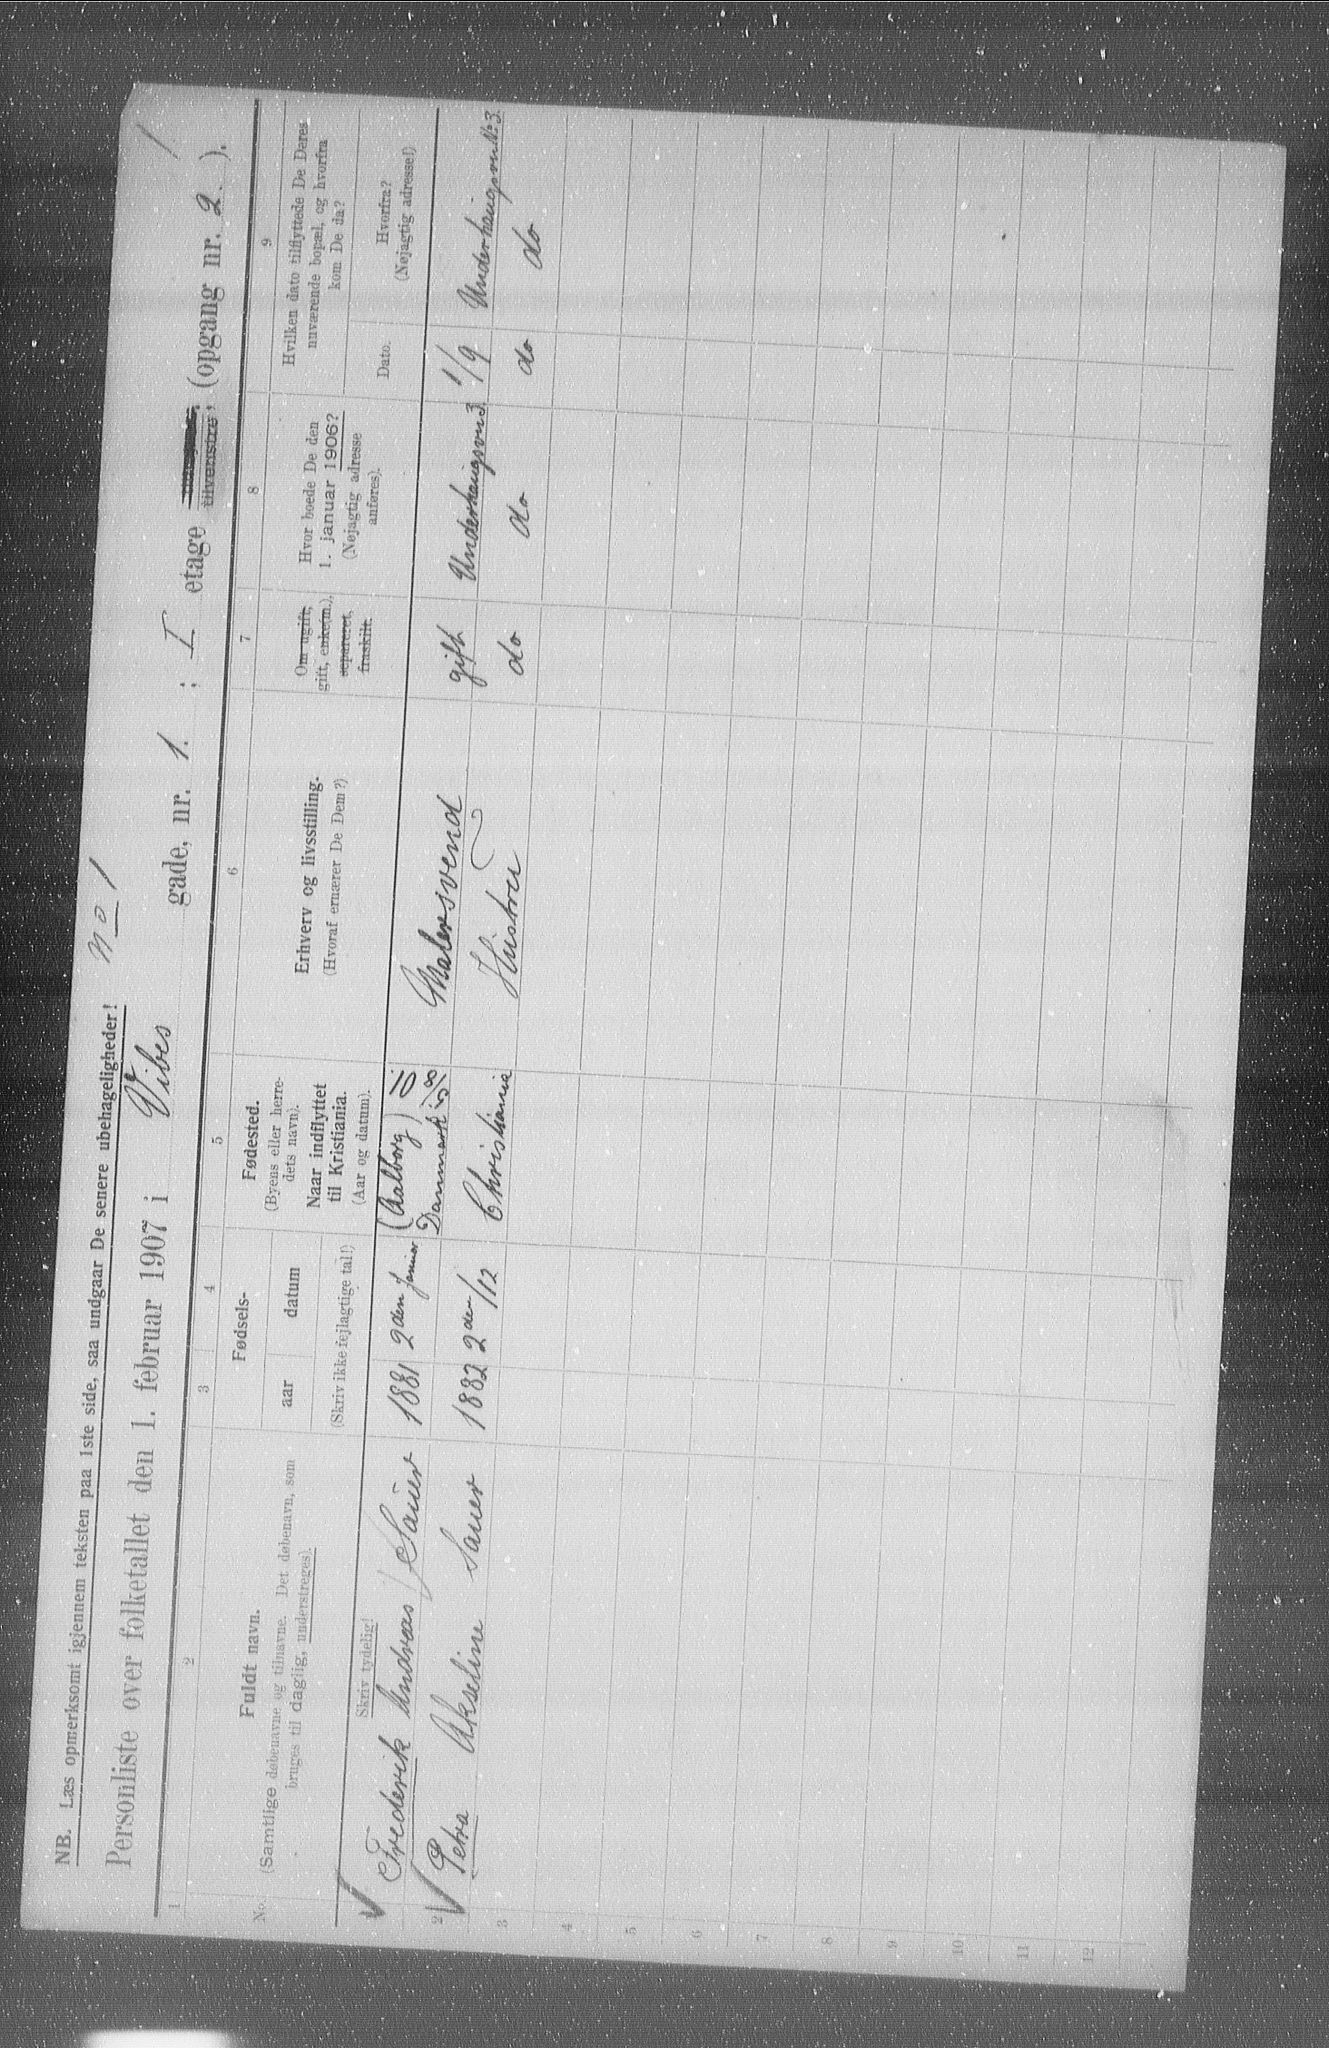 NB. Læs opmerksomt igjennem teksten paa 1ste side, saa undgaar De senere ubehageligheder!
no 1
Personliste over folketallet den 1. februar 1907 i Vibes gade, nr. 1. ; I etage tilvenstre, (opgang nr. 2. ).
1 2 3 4 5 6 7 8 9
No.
Fuldt navn.
(Samtlige døbenavne og tilnavne. Det døbenavn, som
bruges til daglig, understreges).
Skriv tydelig!
Fødsels-
aar datum
(Skriv ikke fejlagtige tal!)
Fødested.
(Byens eller herre-
dets navn).
Naar indflyttet
til Kristiania.
(Aar og datum).
Erhverv og livsstilling.
(Hvoraf ernærer De Dem?)
Om ugift,
gift, enke(m.),
separeret,
fraskilt.
Hvor boede De den
1. januar 1906?
(Nøjagtig adresse
anføres).
Hvilken dato tilflyttede De Deres
nuværende bopæl, og hvorfra
kom De da?
Dato.
Hvorfra?
(Nøjagtig adresse!)
Frederik Andreas Sauer 1881 2den januar (Aalborg) Danmark Malersvend gift Underhaugsvn 3. 1/9 Underhaugsvn No 3.
2 Petra Akseline Sauer 1882 2den/12 Christiania Hustru do do do do
3
4
5
6
7
8
9
10
11
12